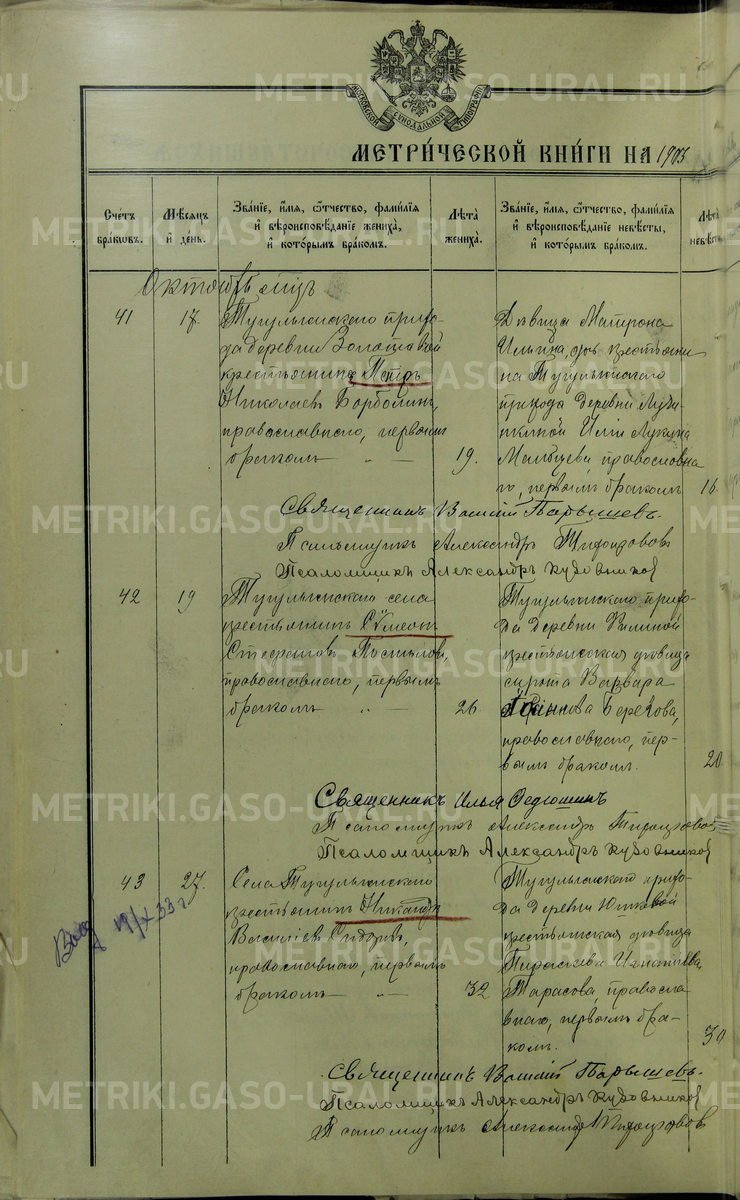 МОСКОВСКОЙ СѴНОДАЛЬНОЙ ТИПОГРАФІИ
МЕТРИ́ЧЕСКОЙ КНИ́ГИ НА 1903
Сче́тъ бра́кѡвъ.
Мѣ́сяцъ и҆ де́нь.
Зва́нїе, и҆́мя, ѻ҆́тчество, фамилїѧ и҆ вѣроисповѣ́данїе жениха̀, и҆ кото́рымъ бра́комъ.
Лѣ́та жениха̀.
Зва́нїе, и҆́мя, ѻ҆́тчество, фами́лїѧ и҆ вѣроисповѣ́данїе невѣ́сты, и҆ кото́рымъ бра́комъ.
Лѣ́та невѣ́сты
Октябрь мцъ
41
17.
Тугулымского прихо-
да деревни Золотовой
крестьянинъ Петръ
Николаевъ
православного, первымъ
бракомъ — „ —
19.
Дѣвица Матрона
Ильина, дочь крестьяни
на Тугулымского
прихода деревни
Иліи
Мальцева православна
го, первымъ бракомъ
16.
Священникъ Василій Парышевъ.
Псаломщикъ Александръ
Псаломщикъ Александръ Кудовников
42
19
Тугулымского села
крестьянинъ Сѵмеонъ
православного, первымъ
бракомъ — „ —
26
Тугулымского прихо-
да деревни
крестьянская дѣвица
сирота Варвара
православного, пер-
вымъ бракомъ.
20
Священникъ Илья Ѳедюшинъ
Псаломщикъ Александръ
Псаломщикъ Александръ Кудовников
43
27.
Села Тугулымского
крестьянинъ Никандръ
Васильевъ Сидоровъ,
православного, первымъ
бракомъ — „ —
32
Тугулымского прихо-
да деревни Юшковой
крестьянская дѣвица
Параскева Игнатьева
Тарасова, правосла-
вного, первымъ бра-
комъ.
30
19/X 33 г
Священникъ Василій Парышевъ.
Псаломщикъ Александръ Кудовников
Псаломщикъ Александръ
METRIKI.GASO-URAL.RU